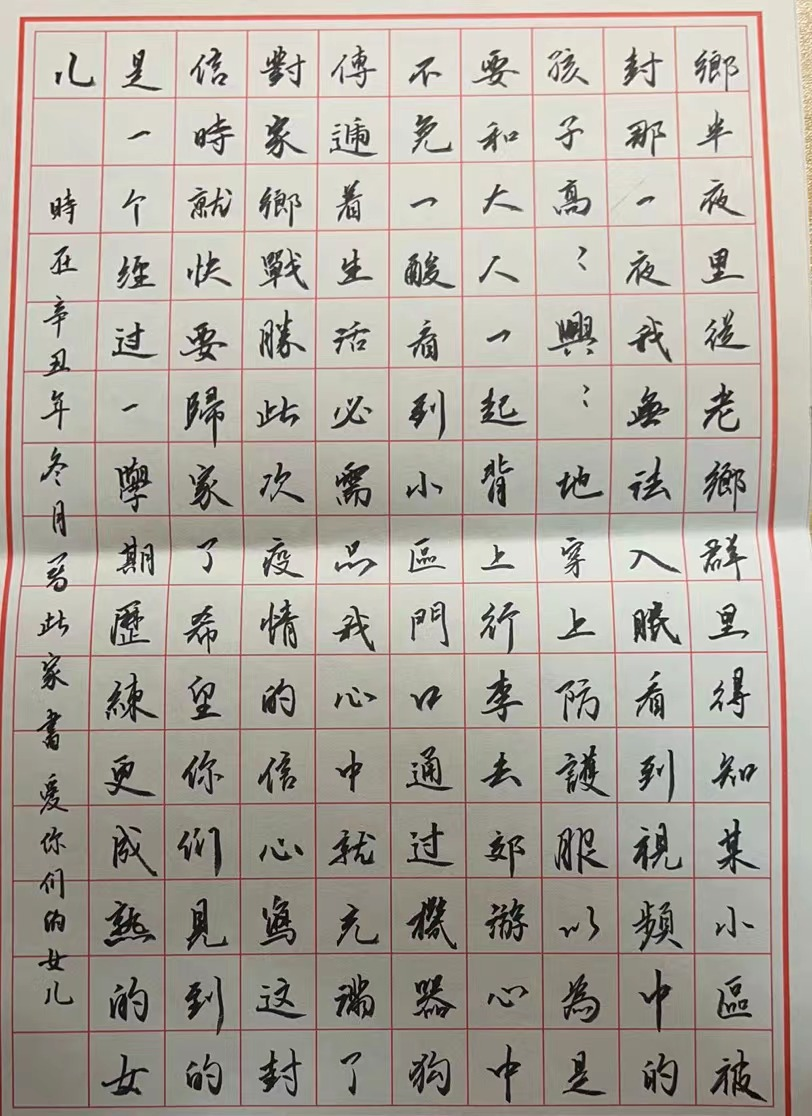 鄉半夜里從老鄉群里得知某小區被
封那一夜我無法入眠看到視頻中的
孩子高〻興〻地穿上防護服以為是
要和大人一起背上行李去郊游心中
不免一酸看到小區門口通过機器狗
傳遞着生活必需品我心中就充滿了
對家鄉戰勝此次疫情的信心寫这封
信時就快要歸家了希望你们見到的
是一个經过一學期歷練更成熟的女
儿
時在辛丑年冬月寫此家書愛你们的女儿